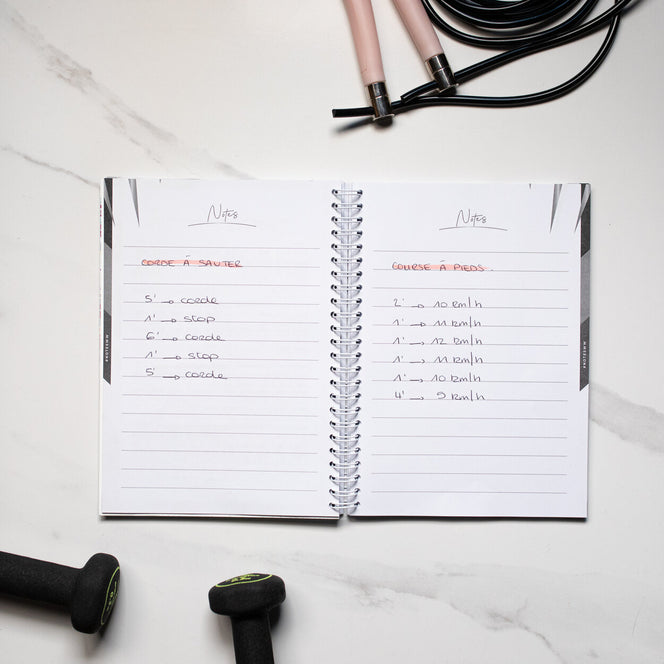 Notes
CORDE À SAUTER
5' → corde
1' → stop
6' → corde
1' → stop
5' → corde
Notes
COURSE À PIEDS.
2' → 10 km/h
1' → 11 km/h
1' → 12 km/h
1' → 11 km/h
1' → 10 km/h
4' → 9 km/h